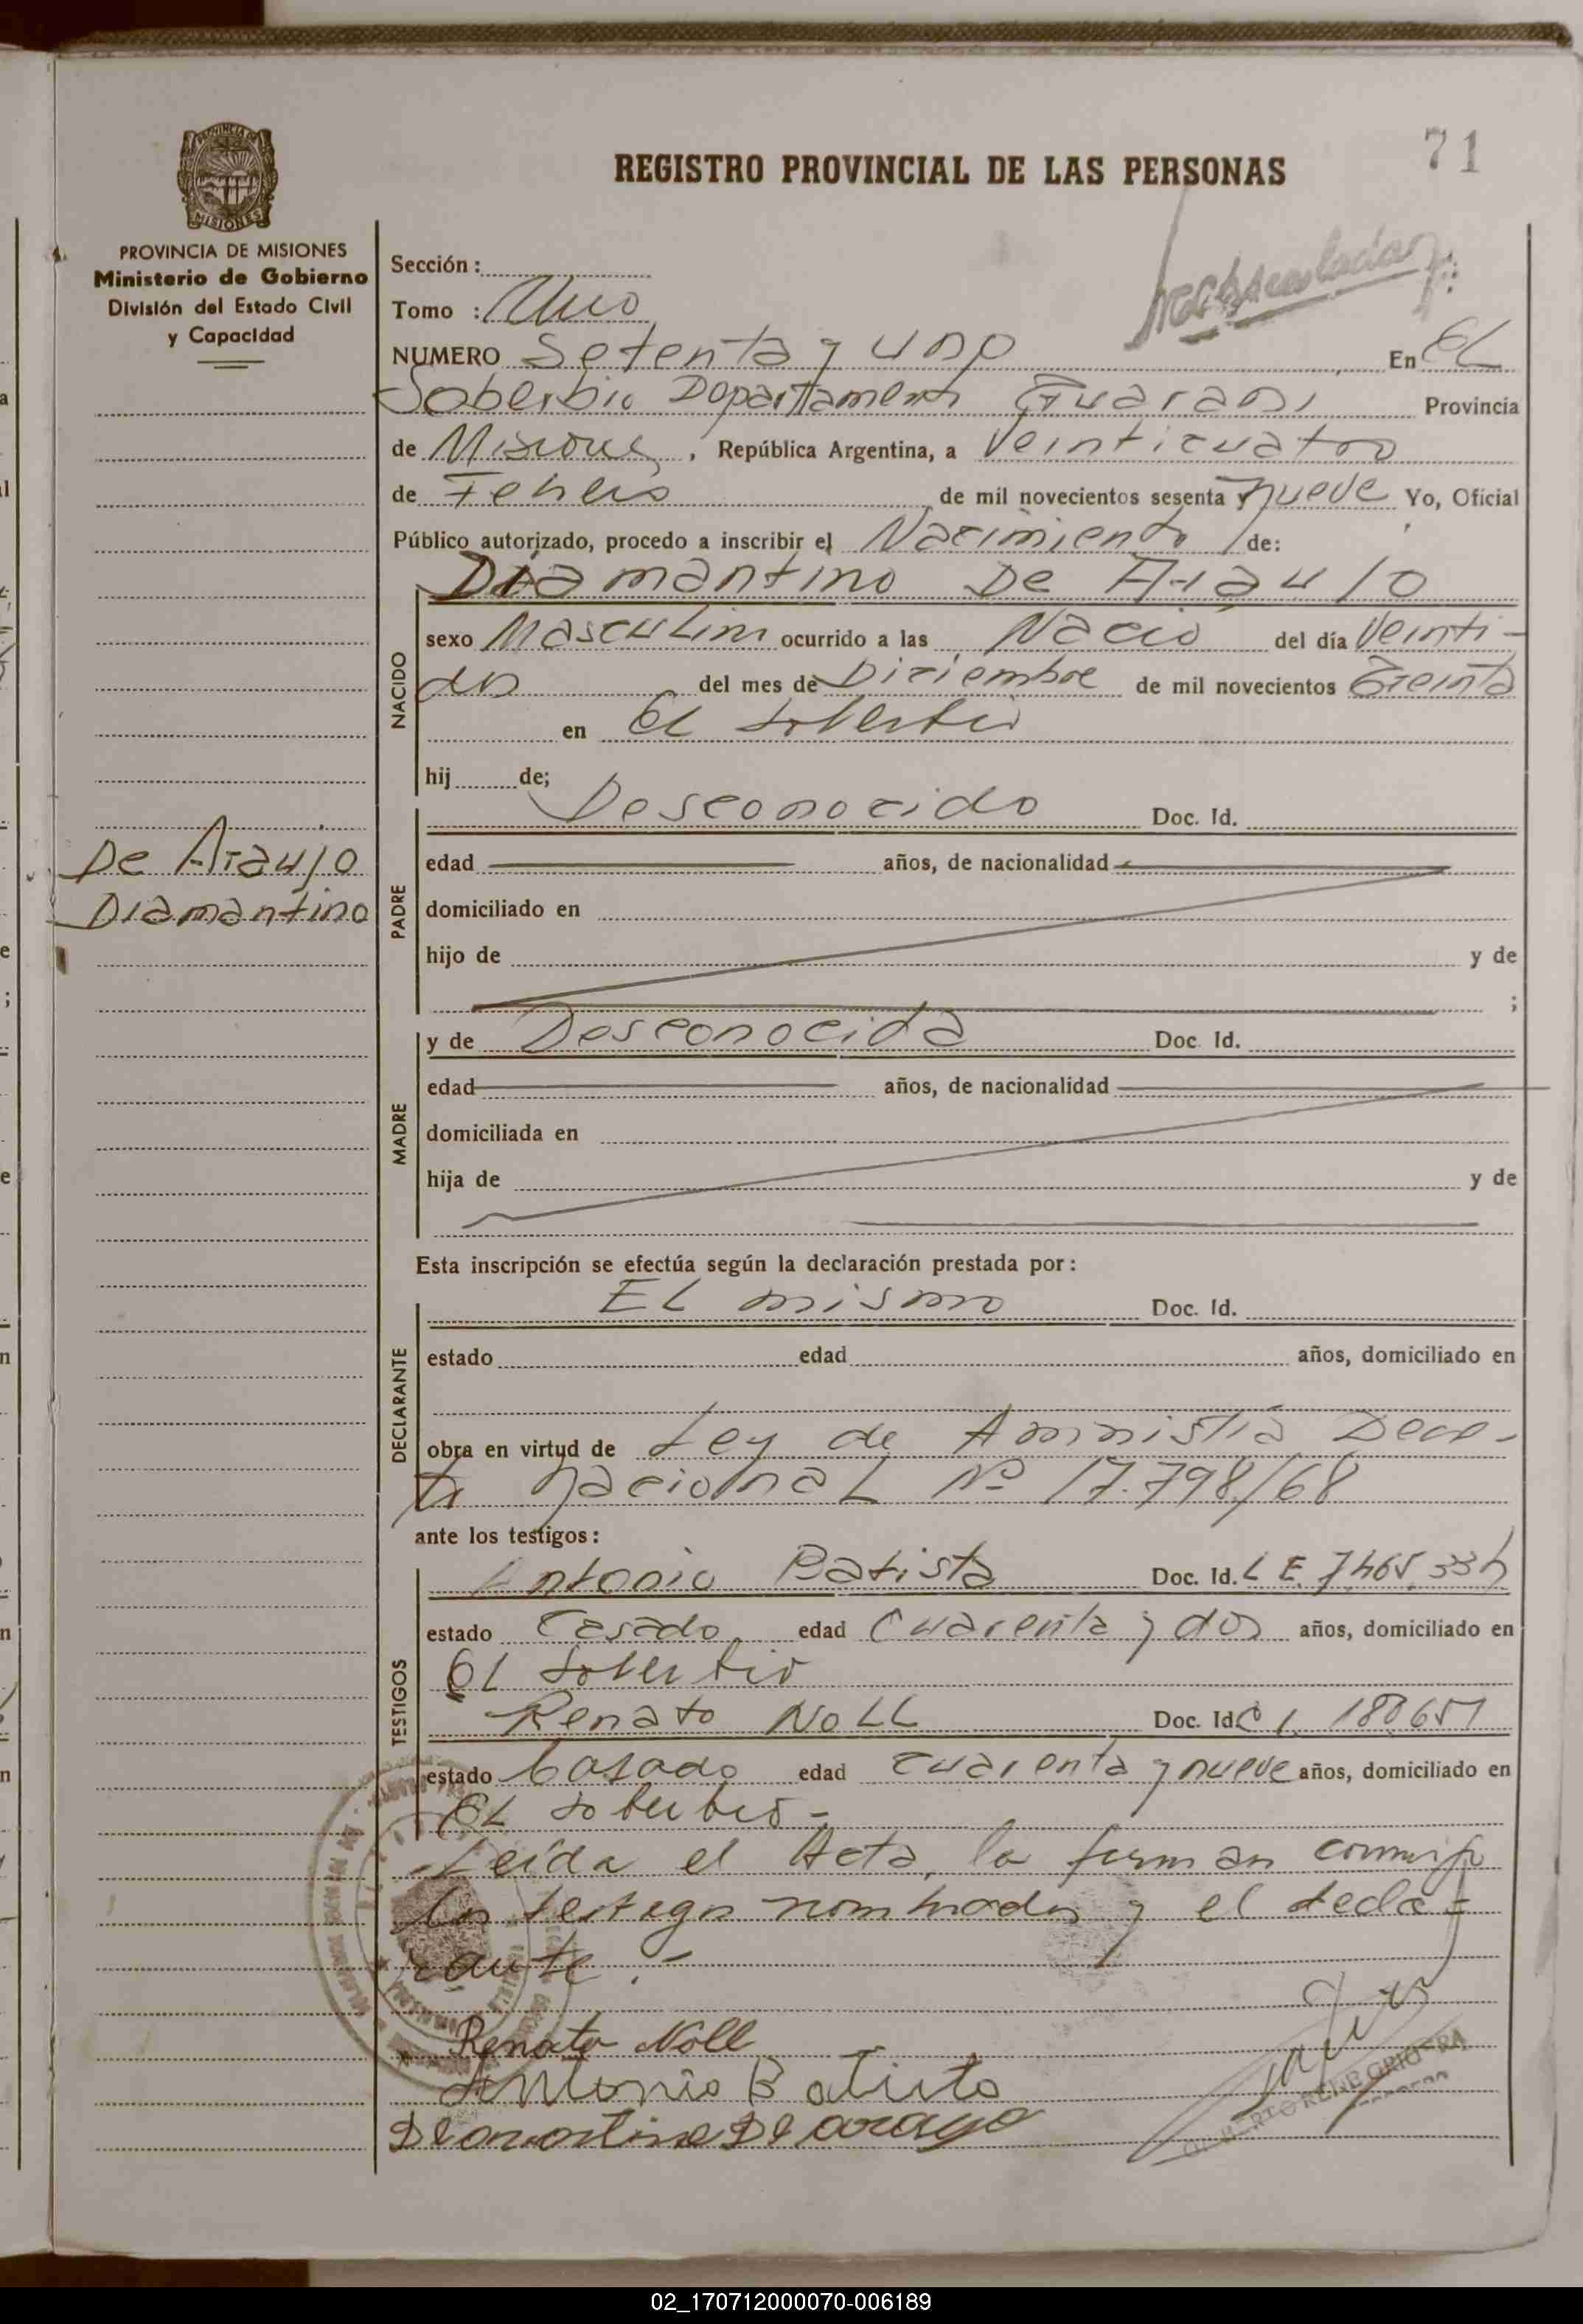 71
PROVINCIA DE MISIONES
REGISTRO PROVINCIAL DE LAS PERSONAS
PROVINCIA DE MISIONES
Ministerio de Gobierno
División del Estado Civil
y Capacidad
Sección :
Tomo : Uno
NUMERO Setenta y uno En El
Soberbio Departamento Guarani Provincia
de Misiones, República Argentina, a Veinticuatro
de Febrero de mil novecientos sesenta y nueve Yo, Oficial
Público autorizado, procedo a inscribir el Nacimiento de:
Diamantino De Araujo
NACIDO
sexo Masculino ocurrido a las Nació del día Veinti-
dos del mes de Diciembre de mil novecientos Treinta
en El Soberbio
hij de;
De Araujo
Diamantino
PADRE
Desconocido Doc. Id.
edad años, de nacionalidad
domiciliado en
hijo de y de
;
MADRE
y de Desconocida Doc. Id.
edad años, de nacionalidad
domiciliada en
hija de y de
Esta inscripción se efectúa según la declaración prestada por :
DECLARANTE
El mismo Doc. Id.
estado edad años, domiciliado en
obra en virtud de Ley de Aministia Decre-
to nacional Nº 17.798/68
ante los testigos :
TESTIGOS
Antonio Batista Doc. Id. L E. 7.465.334
estado Casado edad Cuarenta y dos años, domiciliado en
El Soberbio
Renato Noll Doc. Id. C I. 180651
estado Casado edad Cuarenta y nueve años, domiciliado en
El Soberbio -
Leída el Acta, la firman conmigo
los testigos nombrados y el decla-
rante.-
Renato Noll
Antonio Batista
02_170712000070-006189